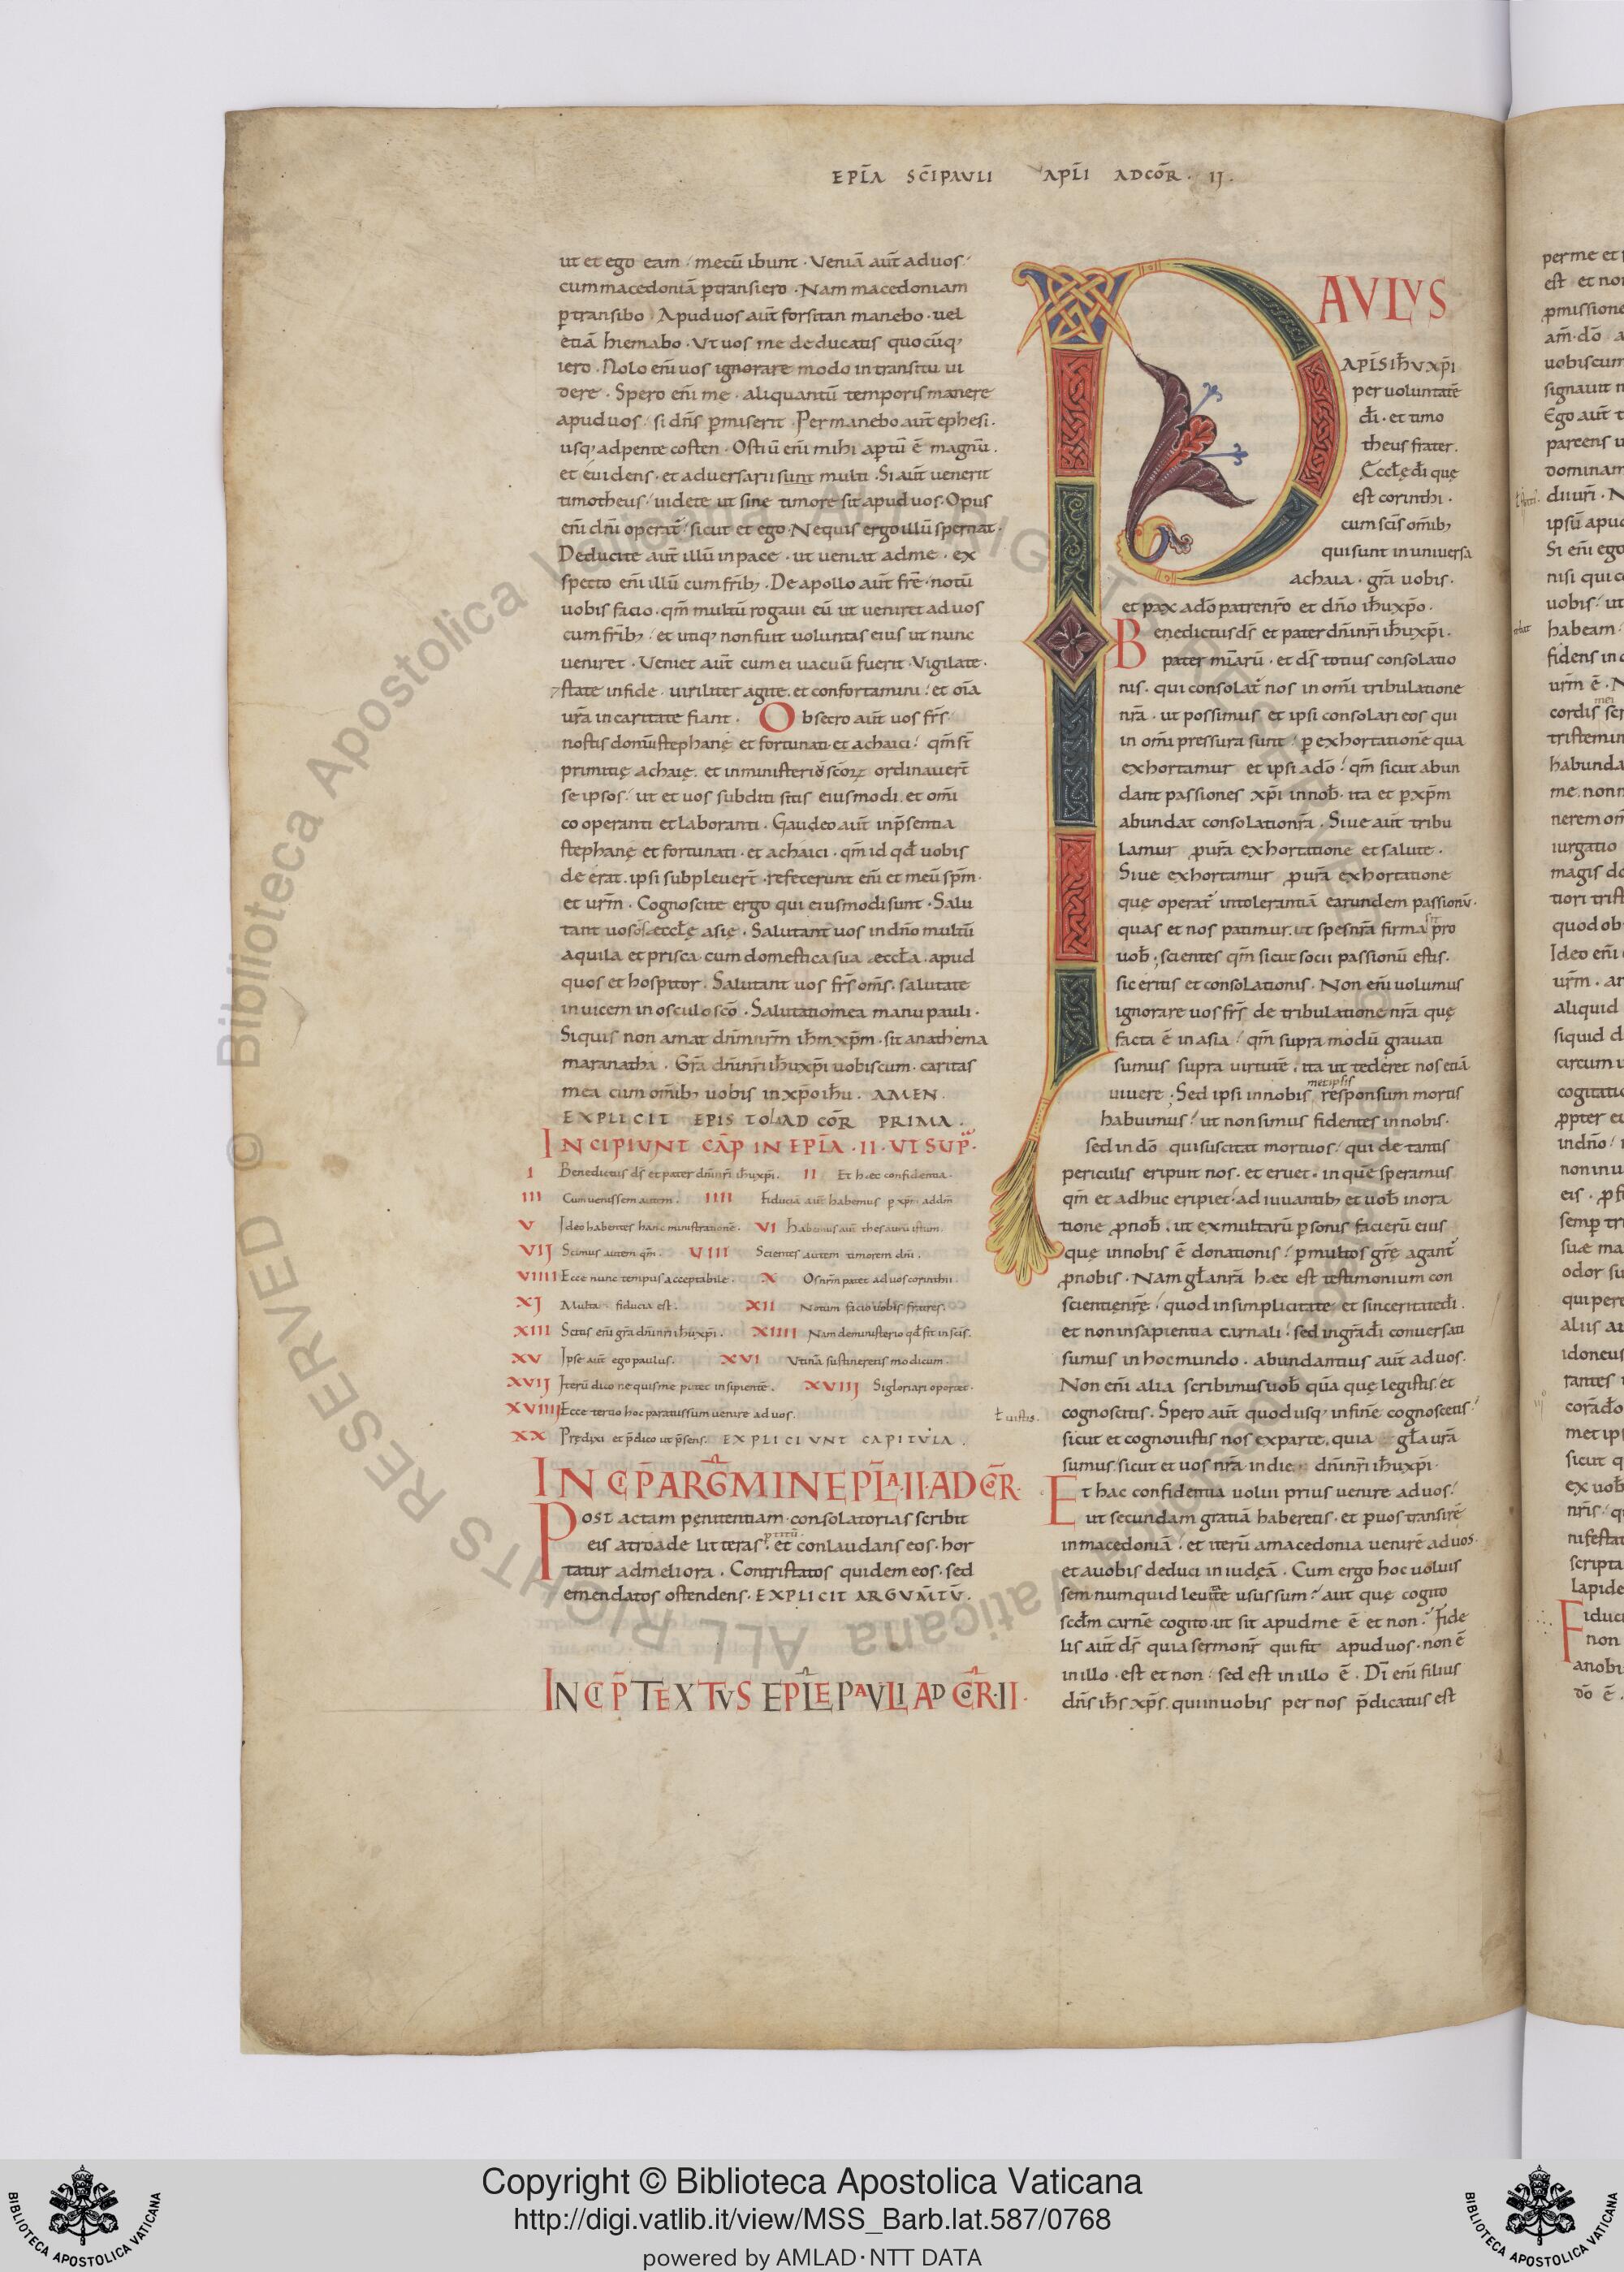 EPL̄A SC̄IPAVLI APL̄I ADCOR̄. II.
ut et ego eam mecū ibunt. Veniā aut̄ aduos
cum macedoniā ptransiero. Nam macedoniam
ptransibo. Apud uos aut̄ forsitan manebo. uel
etiā hiemabo. Ut uos me deducatis quocūq;
iero. Nolo eni̅ uos ignorare modo in transitu ui
dere. Spero eni̅ me. aliquantū temporis manere
apud uos si dn̄s pmiserit. Permanebo aut̄ ephesi.
usq; ad pentecosten. Ostiū eni̅ mihi aptū ē magnū.
et euidens. et aduersarii sunt multi. Si aut̄ uenerit
timotheus uidete ut sine timore sit apud uos. Opus
eni̅ dn̄i operat̄ sicut et ego. Ne quis ergo illū spernat.
Deducite aut̄ illū in pace. ut ueniat ad me. ex
specto eni̅ illū cum frīb;. De apollo aut̄ fr̄e. notū
uobis facio. qm̄ multū rogaui eū ut ueniret ad uos
cum fr̄ib; et utiq; non fuit uoluntas eius ut nunc
ueniret. Veniet aut̄ cum ei uacuū fuerit. Vigilate.
state in fide. uiriliter agite. et confortamini et oīa
ur̄a in caritate fiant. Obsecro aut̄ uos fr̄s
nostis domū stephanę et fortunati et achaici qm̄ st̄
primitię achaię. et in ministeriū scōꝝ ordinauert̄
se ipsos ut et uos subditi sitis eiusmodi. et om̄i
cooperanti et laboranti. Gaudeo aut̄ in p̄sentia
stephanę et fortunati. et achaici. qm̄ id qđ uobis
deerat. ipsi subpleuert̄. refecerunt eni̅ et meū sp̄m.
et ur̄m. Cognoscite ergo qui eiusmodi sunt. Salu
tant uos oms̄ eccłę asię. Salutant uos in dn̄o multū
aquila et prisca cum domestica sua eccła. apud
quos et hospitor. Salutant uos fr̄s om̄s. salutate
inuicem in osculo scō. Salutatio mea manu pauli.
Siquis non amat dn̄m nr̄m ih̄m xp̄m. sit anathema
maranatha. Gr̄a dn̄i nr̄i ih̄u xp̄i uobiscum. caritas
mea cum om̄ib; uobis in xp̄o ih̄u. AMEN.
EXPLICIT EPISTOLA AD COR̄ PRIMA.
INCIPIUNT CAP̄ IN EPL̄A. II. UT SUP̄.
I Benedictus ds̄ et pater dn̄i nr̄i ih̄u xp̄i. II Et hac confidentia.
III Cum uenissem autem. IIII Fiduciā aut̄ habemus p xp̄m addm̄
V Ideo habentes hanc ministrationē. VI Habemus aut̄ thesaurū istum.
VII Scimus autem qm̄. VIII Scientes autem timorem dn̄i.
VIIII Ecce nunc tempus acceptabile. X Os nr̄m patet ad uos corinthii.
XI Multa fiducia est. XII Notum facio uobis fratres.
XIII Scitis eni̅ gr̄a dn̄i nr̄i ih̄u xp̄i. XIIII Nam de ministerio qđ fit in scīs.
XV Ipse aut̄ ego paulus. XVI Utinā sustineretis modicum.
XVII Iterū dico ne quis me putet insipientē. XVIII Si gloriari oportet.
XVIIII Ecce tertio hoc paratus sum uenire ad uos.
XX Prędixi et p̄dico ut p̄sens. EXPLICIUNT CAPITULA.
INCIP̄ ARGM̄ IN EPL̄A. II. AD COR̄.
Post actam penitentiam. consolatorias scribit
eis a troade litteras et conlaudans eos. hor
tatur ad meliora. Contristatos quidem eos. sed
emendatos ostendens. EXPLICIT ARGUM̄TŪ.
INCIP̄ TEXTUS EPL̄E PAULI AD COR̄. II.
PAULUS
APL̄S IH̄U XP̄I
per uoluntatē
dī. et timo
theus frater.
Eccłę dī quę
est corinthi.
cum scīs om̄ib;
qui sunt in uniuersa
achaia. gr̄a uobis.
et pax a dō patre nr̄o et dn̄o ih̄u xp̄o.
Benedictus ds̄ et pater dn̄i nr̄i ih̄u xp̄i.
pater miār̄ū. et ds̄ totius consolatio
nis. qui consolat̄ nos in om̄i tribulatione
nr̄a. ut possimus et ipsi consolari eos qui
in om̄i pressura sunt p exhortationē qua
exhortamur et ipsi a dō qm̄ sicut abun
dant passiones xp̄i in nob̄. ita et p xp̄m
abundat consolatio nr̄a. Siue aut̄ tribu
lamur p ur̄a exhortatione et salute.
Siue exhortamur p ur̄a exhortatione
quę operat̄ in tolerantiā earundem passionū.
quas et nos patimur. ut spes nr̄a firma sit pro
uob̄; scientes qm̄ sicut socii passionū estis.
sic eritis et consolationis. Non eni̅ uolumus
ignorare uos fr̄s de tribulatione nr̄a quę
facta ē in asia qm̄ supra modū grauati
sumus supra uirtutē. ita ut tederet nos etiā
uiuere; Sed ipsi in nobis metipsis responsum mortis
habuimus ut non simus fidentes in nobis.
sed in dō qui suscitat mortuos qui de tantis
periculis eripuit nos. et eruet. in quē speramus
qm̄ et adhuc eripiet. adiuuantib; et uob̄ in ora
tione p nob̄. ut ex multarū psonis facierū eius
quę in nobis ē donationis p multos gr̄ę agant̄
p nobis. Nam gła nr̄a hęc est testimonium con
scientię nr̄ę quod in simplicitate et sinceritate dī.
et non in sapientia carnali sed in gr̄a dī conuersati
sumus in hoc mundo. abundantius aut̄ ad uos.
Non eni̅ alia scribimus uob̄ quā quę legistis et
ł uistis.
cognoscitis. Spero aut̄ quod usq; in finē cognoscetis
sicut et cognouistis nos ex parte. quia gła ur̄a
sumus. sicut et uos nr̄a in die dn̄i nr̄i ih̄u xp̄i.
Et hac confidentia uolui prius uenire ad uos
ut secundam gratiā haberetis. et p uos transirē
in macedoniā. et iterū a macedonia uenirē ad uos.
et a uobis deduci in iudęā. Cum ergo hoc uoluis
sem numquid leuitate usus sum aut quę cogito
scđm carnē cogito ut sit apud me ē et non. Fide
lis aut̄ ds̄ quia sermo nr̄ qui fit apud uos. non ē
in illo. est et non sed est in illo ē. Dī eni̅ filius
dn̄s ih̄s xp̄s. qui in uobis per nos p̄dicatus est
Copyright © Biblioteca Apostolica Vaticana
http://digi.vatlib.it/view/MSS_Barb.lat.587/0768
powered by AMLAD·NTT DATA
BIBLIOTECA APOSTOLICA VATICANA
BIBLIOTECA APOSTOLICA VATICANA